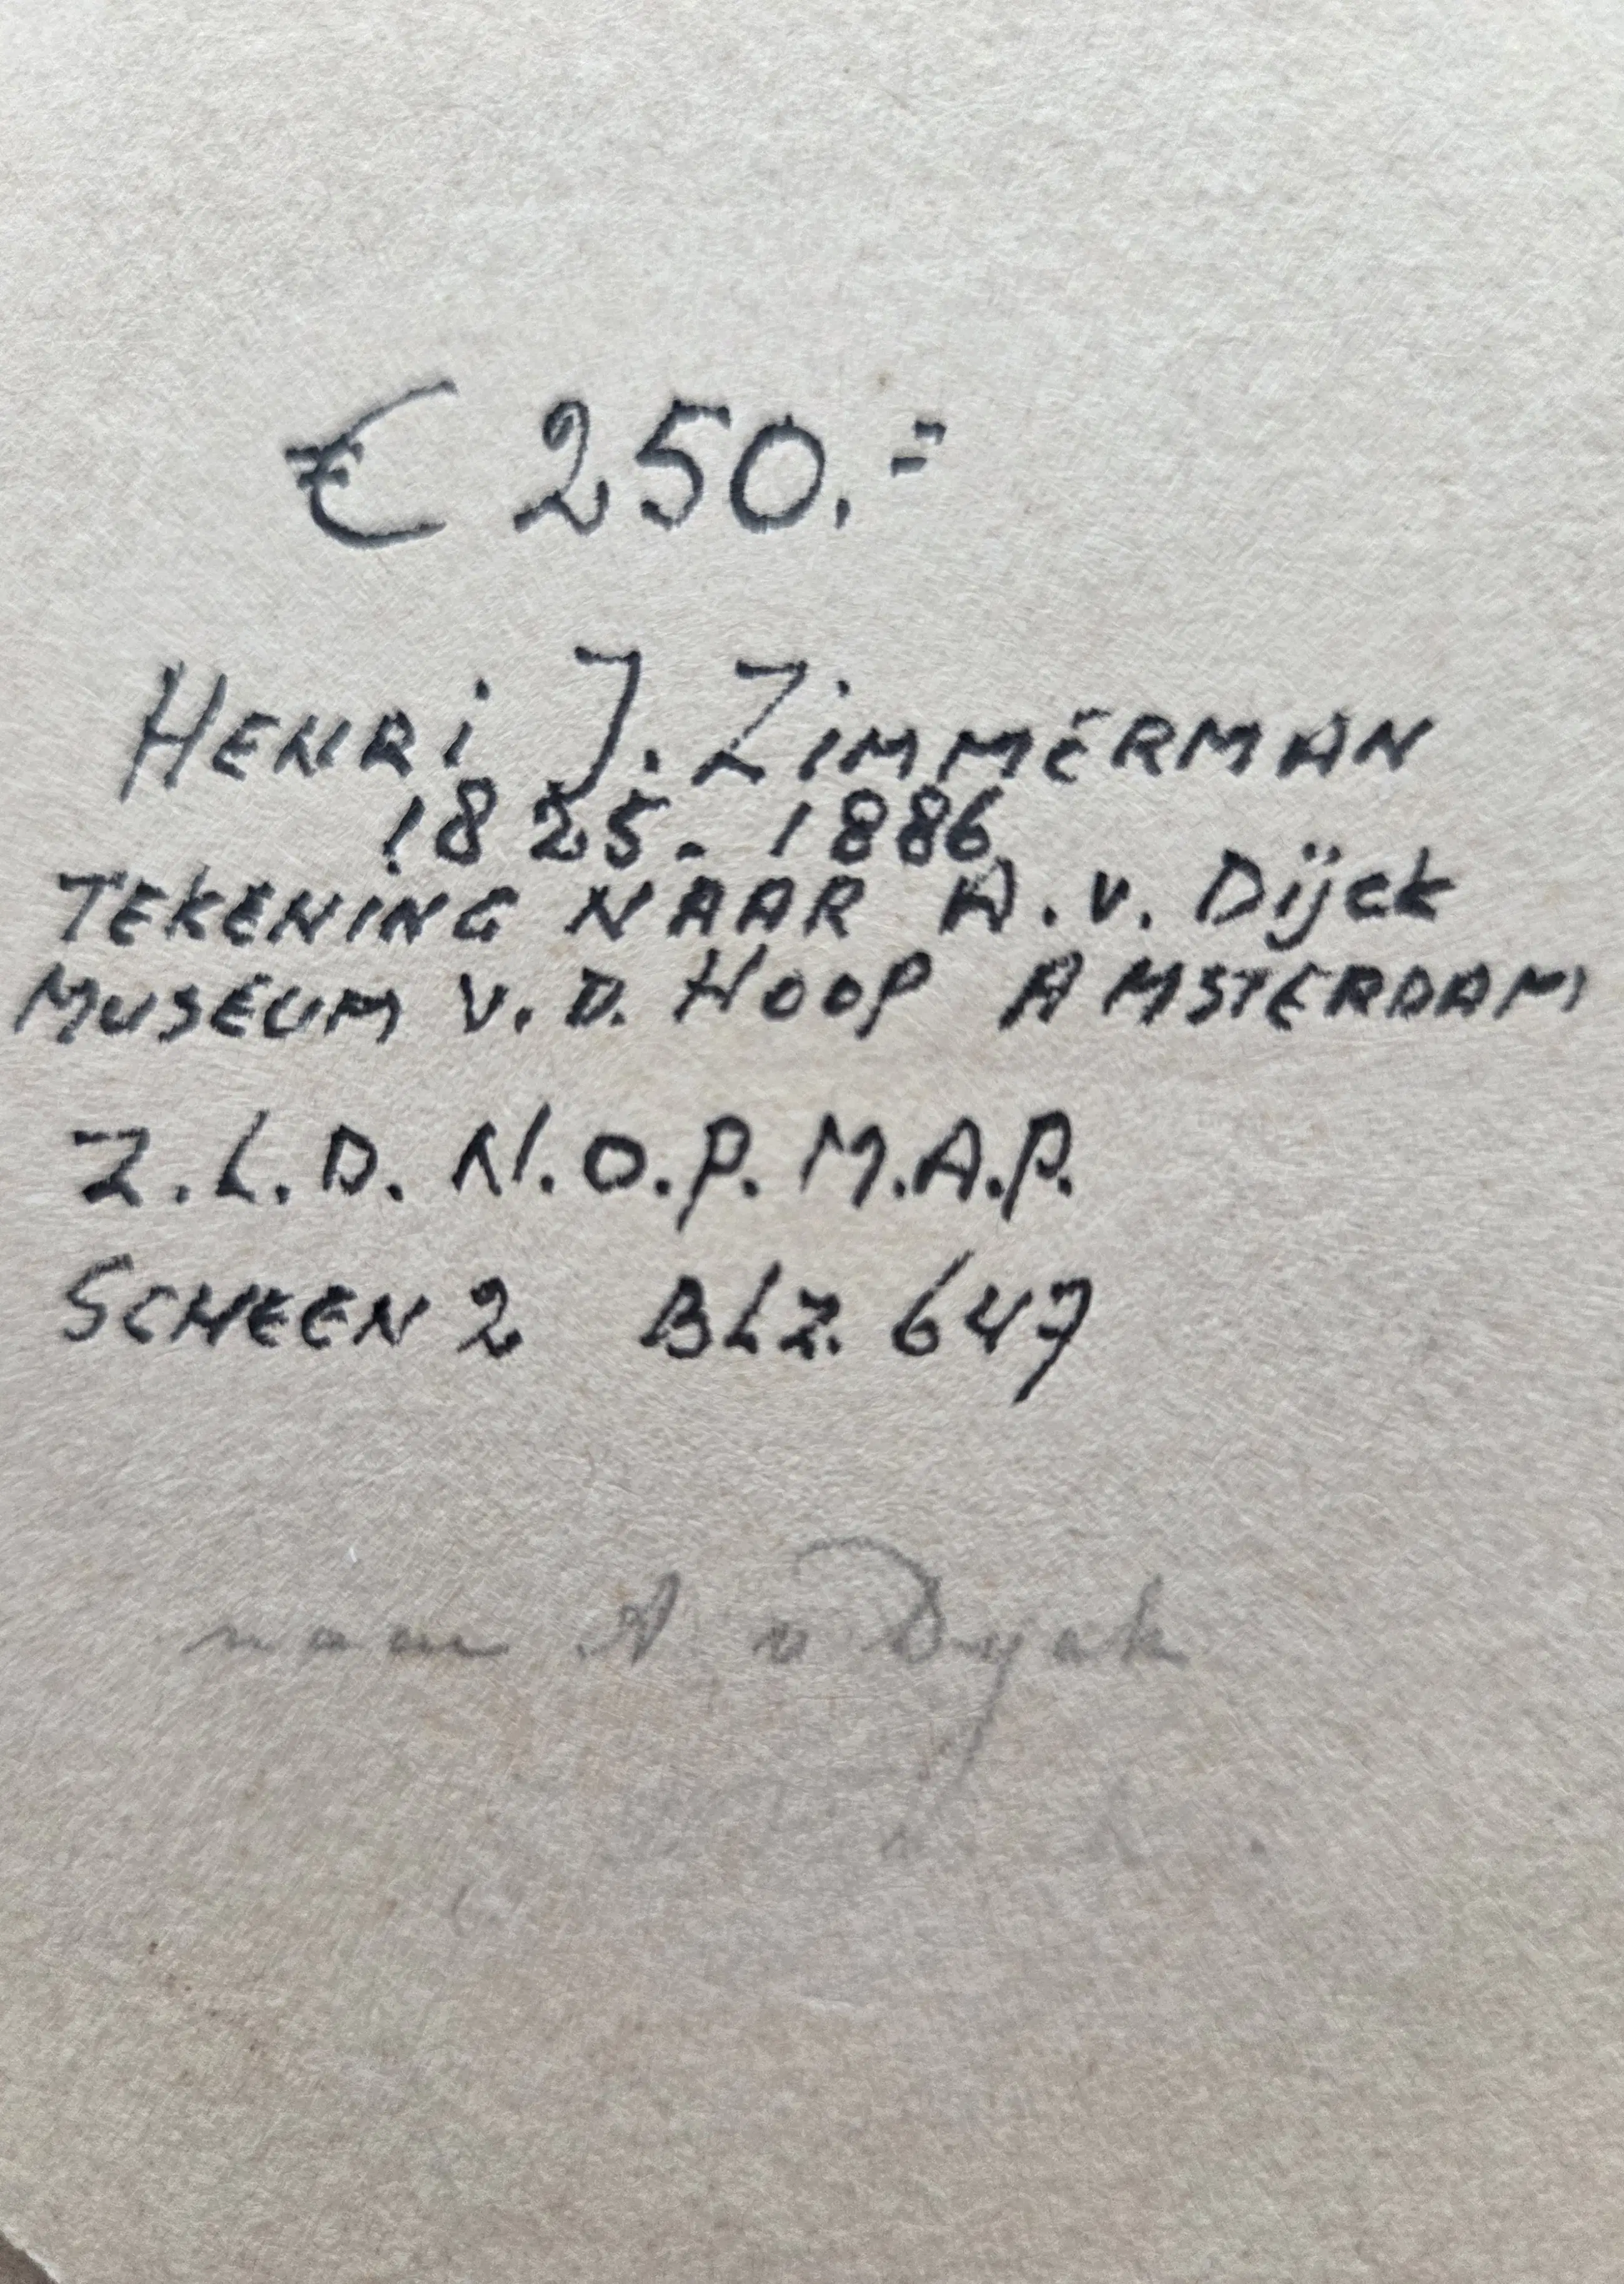 € 250.=
HENRi J. ZIMMERMAN
1825-1886
TEKENING NAAR A. v. Dijck
MUSEUM V.D. HOOP AMSTERDAM
Z.L.D. N.O.P. M.A.P.
SCHEEN 2 BLZ. 647
naar A v Dyck